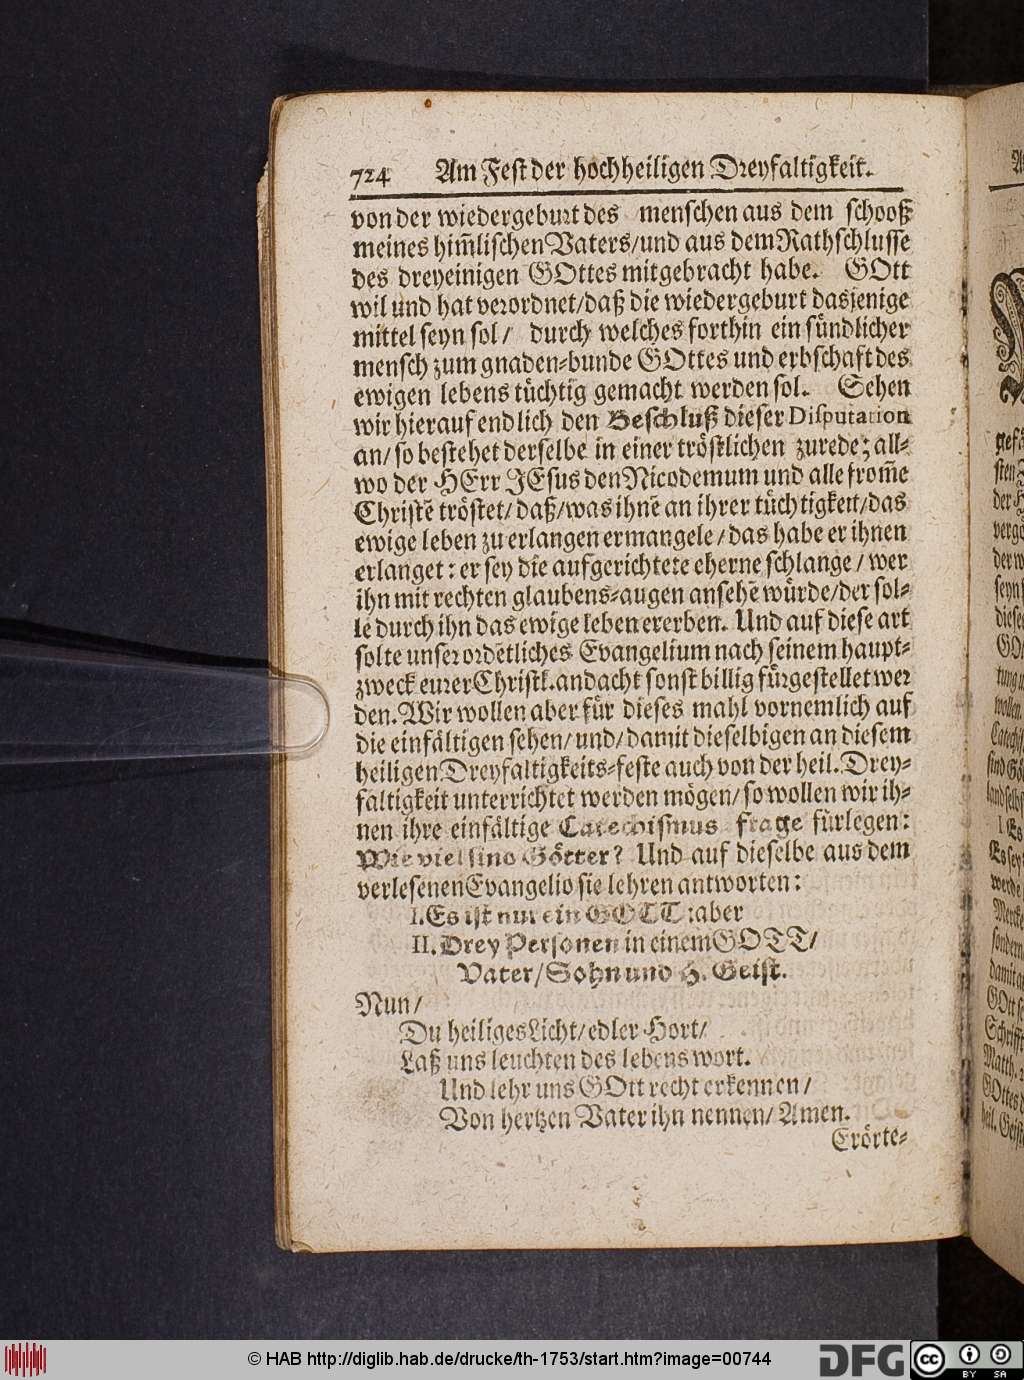 724 Am Fest der hochheiligen Dreyfaltigkeit.
von der wiedergeburt des menschen aus dem schooß
meines him̃lischen Vaters/und aus dem Rathschlusse
des dreyeinigen GOttes mitgebracht habe. GOtt
wil und hat verordnet/daß die wiedergeburt dasjenige
mittel seyn sol/ durch welches forthin ein sündlicher
mensch zum gnaden-bunde GOttes und erbschaft des
ewigen lebens tüchtig gemacht werden sol. Sehen
wir hierauf endlich den Beschluß dieser Disputation
an/ so bestehet derselbe in einer tröstlichen zurede; all-
wo der HErr JEsus den Nicodemum und alle from̃e
Christẽ tröstet/ daß/was ihnẽ an ihrer tüchtigkeit/das
ewige leben zu erlangen ermangele/das habe er ihnen
erlanget: er sey die aufgerichtete eherne schlange/wer
ihn mit rechten glaubens-augen ansehẽ würde/der sol-
le durch ihn das ewige leben ererben. Und auf diese art
solte unser ordẽtliches Evangelium nach seinem haupt-
zweck eurer Christl. andacht sonst billig fürgestellet wer
den. Wir wollen aber für dieses mahl vornemlich auf
die einfältigen sehen/ und/ damit dieselbigen an diesem
heiligen Dreyfaltigkeits-feste auch von der heil. Drey-
faltigkeit unterrichtet werden mögen/ so wollen wir ih-
nen ihre einfältige Catechismus frage fürlegen:
Wie viel sind Götter? Und auf dieselbe aus dem
verlesenen Evangelio sie lehren antworten:
I. Es ist nur ein GOTT: aber
II. Drey Personen in einem GOTT/
Vater/ Sohn und H. Geist.
Nun/
Du heiliges Licht/ edler Hort/
Laß uns leuchten des lebens wort.
Und lehr uns GOtt recht erkennen/
Von hertzen Vater ihn nennen/ Amen.
Erörte-
© HAB http://diglib.hab.de/drucke/th-1753/start.htm?image=00744
DFG
cc BY SA